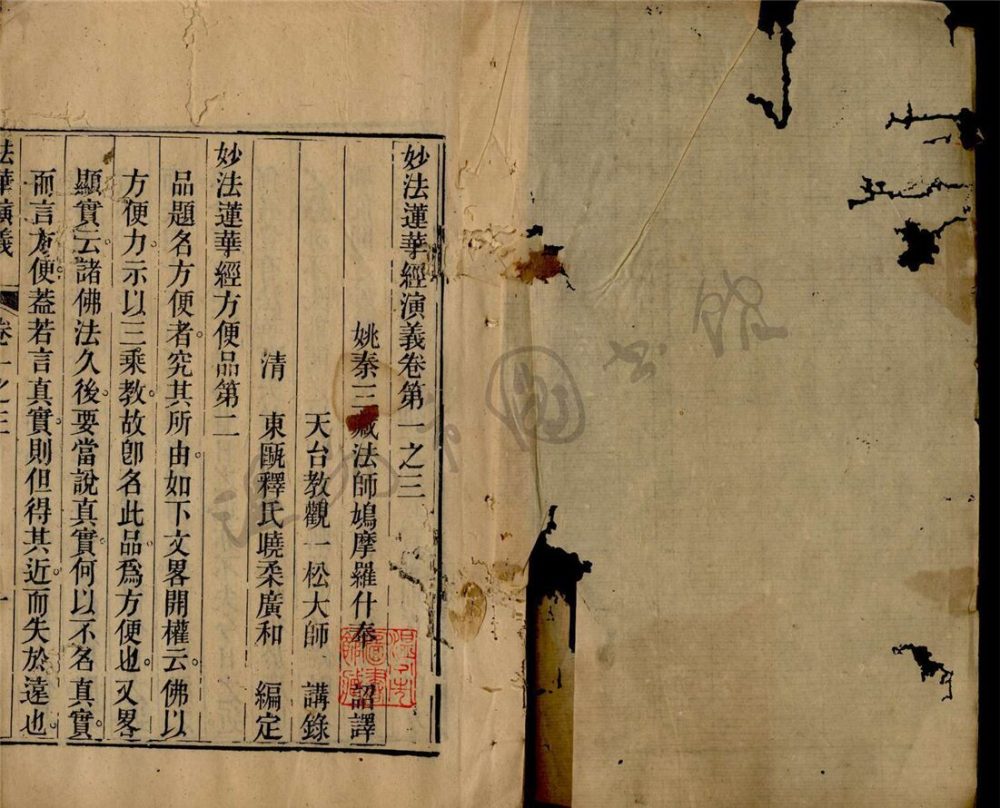 妙法蓮華經演義卷第一之三
姚秦三藏法師鳩摩羅什奉　詔譯
天台教觀一松大師　講錄
清　東甌釋氏曉柔廣和　編定
妙法蓮華經方便品第二
品題名方便者。究其所由。如下文畧開權云。佛以
方便力。示以三乘教。故卽名此品。爲方便也。又畧
顯實云。諸佛法久後。要當說真實。何以不名真實。
而言方便。蓋若言真實。則但得其近。而失於遠也。
法華演義　卷一之三　一
圖書館